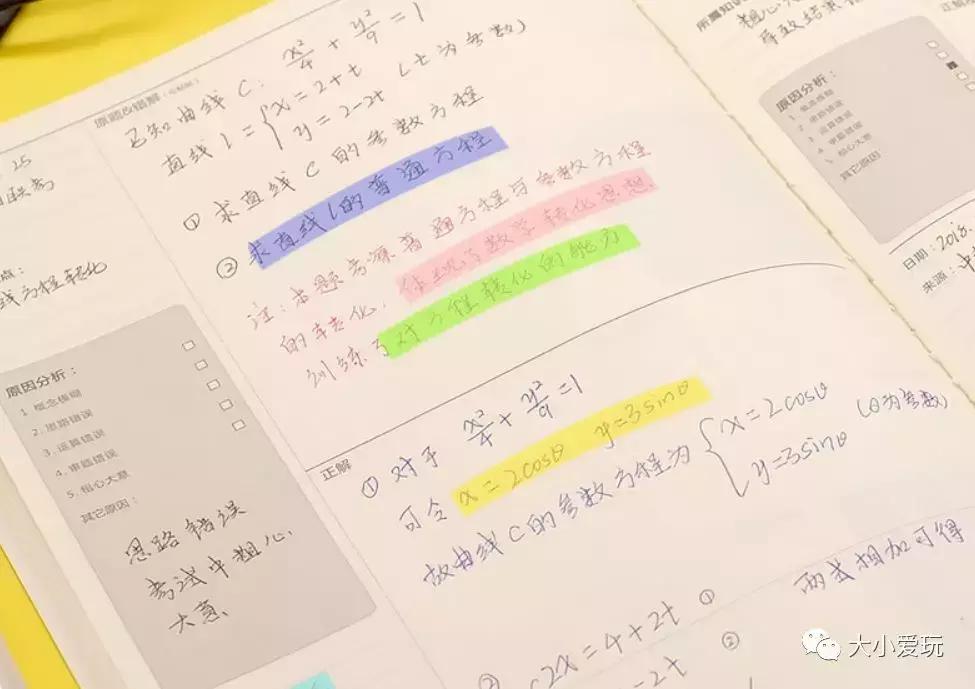 25
原题及错解
已知曲线C: x²/4 + y²/9 = 1
直线l = { x=2+t
y=2-2t (t为参数)
① 求直线C的参数方程
② 求直线l的普通方程
注:本题考源普通方程与参数方程
的转化,体现了数学转化思想
训练了对方程转化的能力
点:
线方程转化
原因分析:
1. 概念模糊
2. 思路错误
3. 运算错误
4. 审题错误
5. 粗心大意
其它原因:
思路错误
考试中粗心
大意、
正解
① 对于 x²/4 + y²/9 = 1
可令 x=2cosθ y=3sinθ
故曲线C的参数方程为 { x=2cosθ
y=3sinθ (θ为参数)
两式相加可得
② 2x=4+2t ①
-2t ②
所属知识
粗心
导致结果
正解
原因分析:
1. 概念模糊
2. 思路错误
3. 运算错误
4. 审题错误
5. 粗心大意
其它原因
日期:2018.
来源:中
大小爱玩